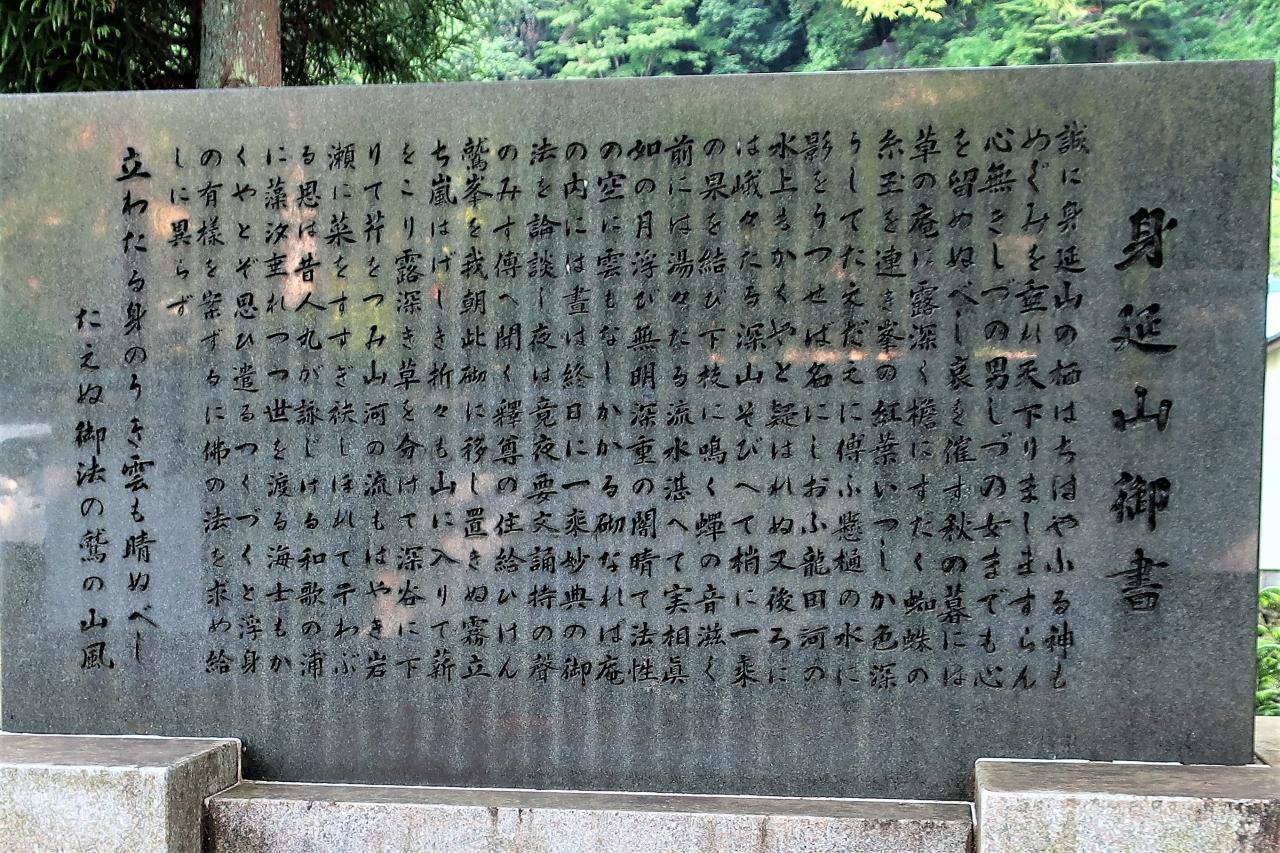 身延山御書
誠に身延山の栖はちはや小る神も
めぐみを垂れ天下りましますらん
心無きしづの男しづの女までも心
を留めぬべし哀を催す秋の暮には
草の庵に露深く檐にすだく蜘蛛の
糸玉を連き峯の紅葉いつしか色深
うしてたえだえに傳ふ懸樋の水に
影をうつせば名にしおふ龍田河の
水上もかくやと疑はれぬ又後ろに
は峨々たる深山そびへて梢に一乘
の果を結び下枝に鳴く蟬の音滋く
前には湯々たる流水湛へて実相眞
如の月浮び無明深重の闇晴て法性
の空に雲もなしかかる砌なれば庵
の内には晝は終日に一乘妙典の御
法を論談し夜は竟夜要文誦持の聲
のみす傳へ聞く釋尊の住給ひけん
鷲峯を我朝此砌に移し置きぬ霧立
ち嵐はげしき折々も山に入りて薪
をこり露深き草を分けて深谷に下
りて芹をつみ山河の流もはやき岩
瀬に菜をすすぎ袂しほれて干わぶ
る思は昔人丸が詠じける和歌の浦
に藻汐垂れつつ世を渡る海士もか
くやとぞ思ひ遣るつくづくと浮身
の有樣を案ずるに佛の法を求め給
しに異らず
立わたる身のうき雲も晴ぬべし
たえぬ御法の鷲の山風